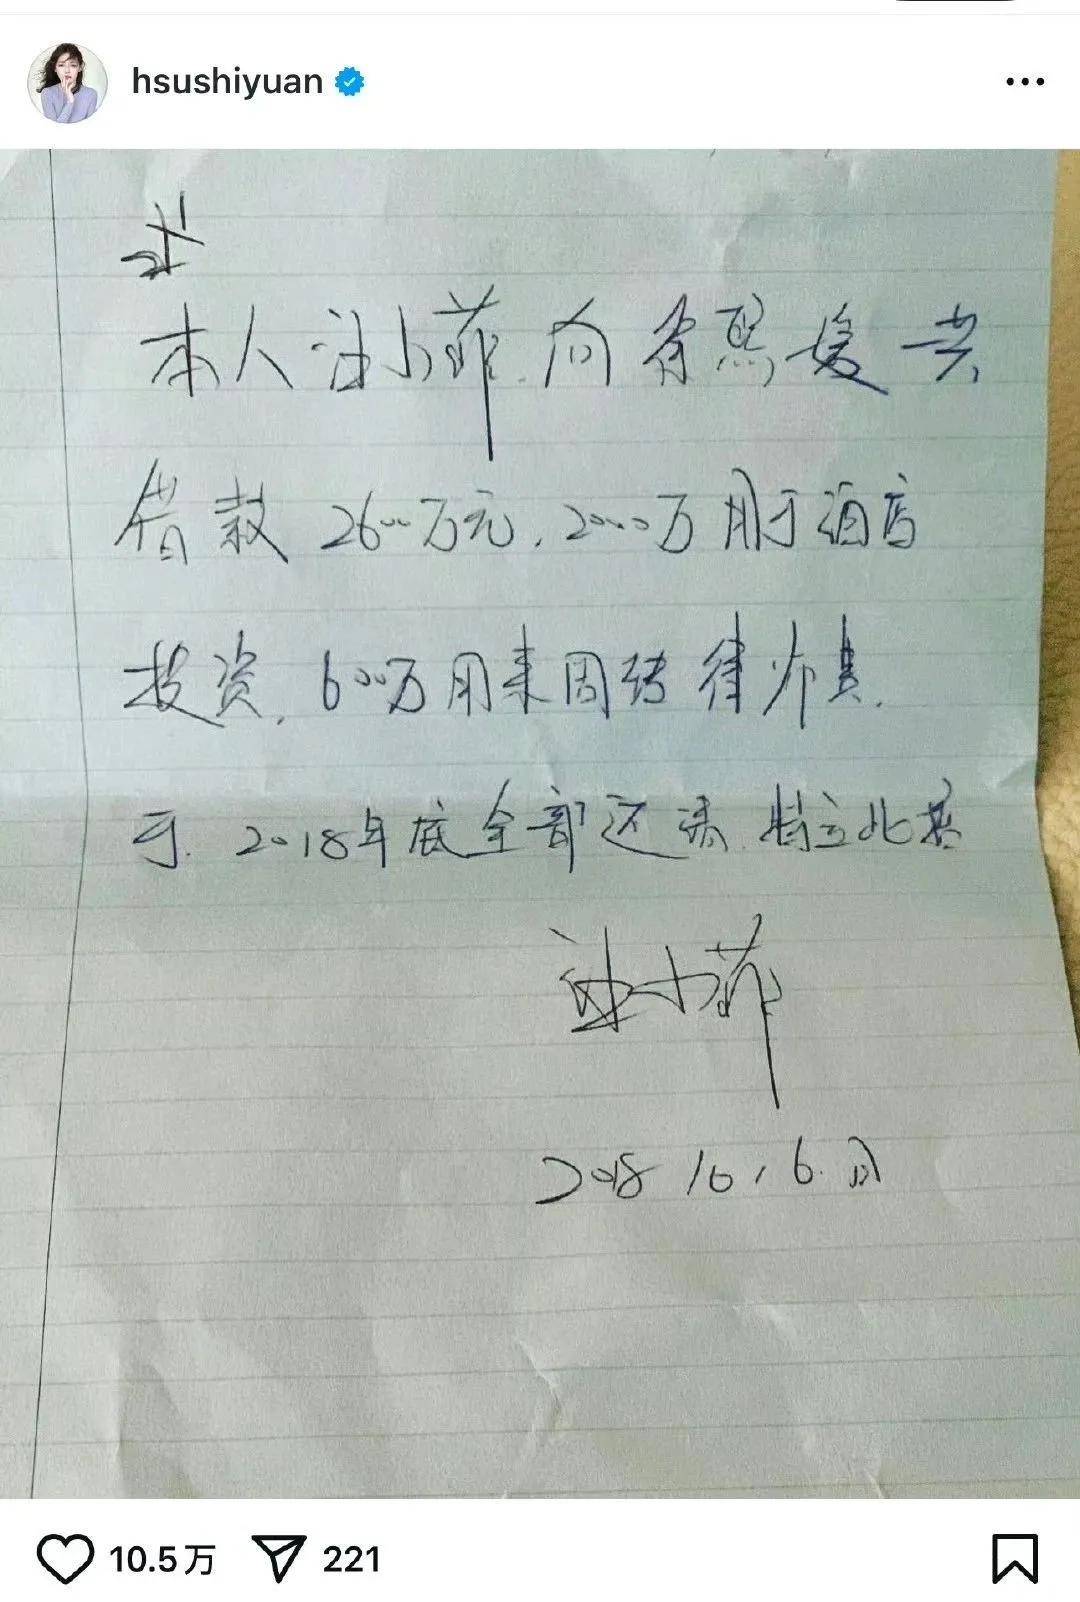 hsushiyuan
本人汪小菲向徐熙媛共
借款2600万元,2000万用于酒店
投资,600万用来周转律师费.
于.2018年底全部还清.特立此据
汪小菲
2018 10,6.
10.5万 221